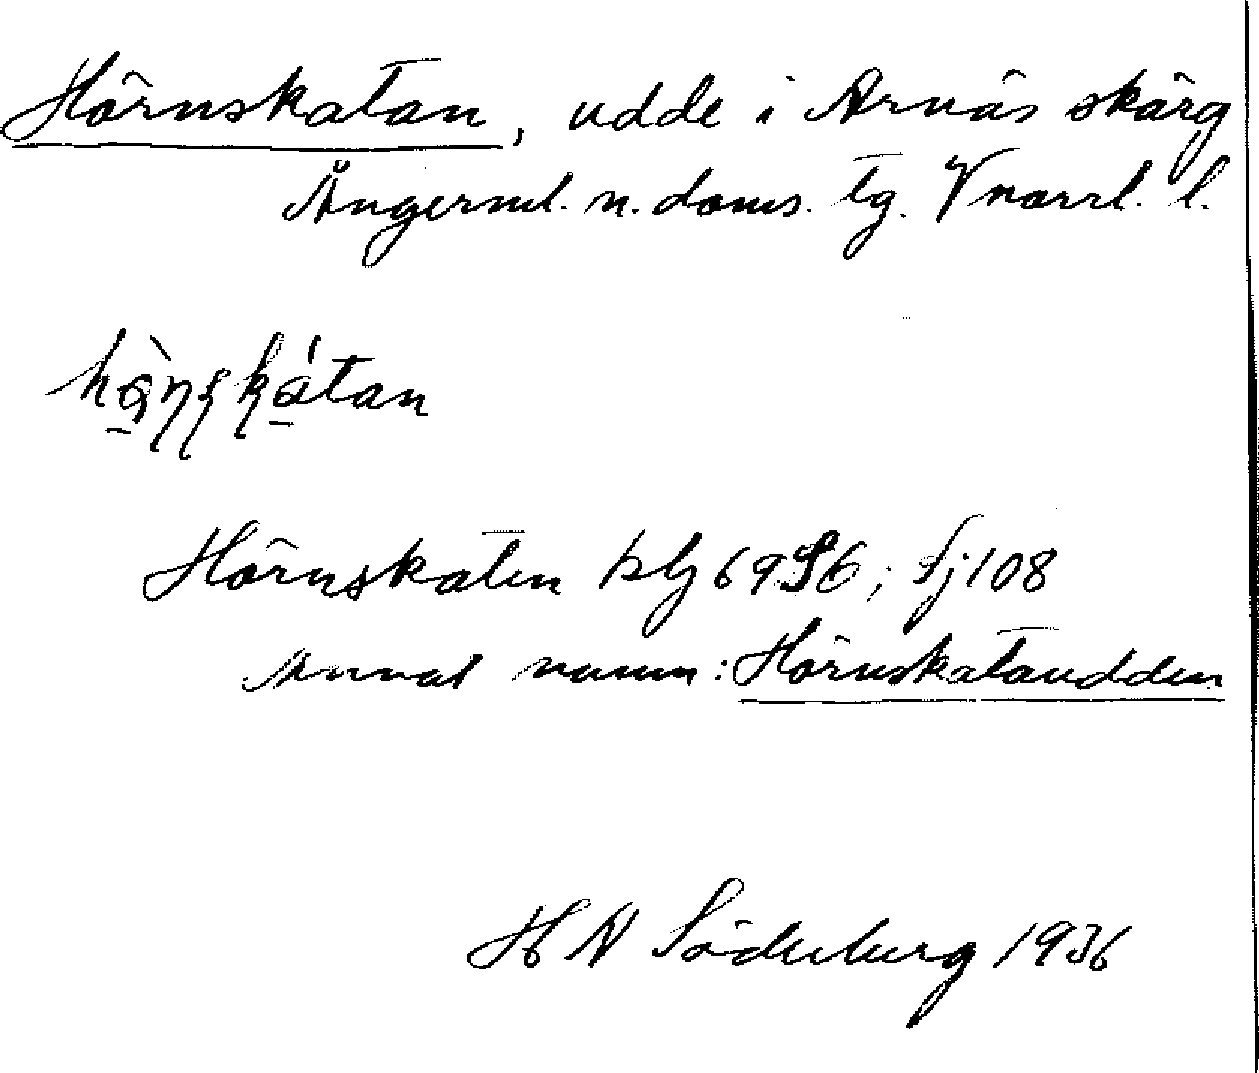 Hörnskatan, udde i Arnäs skärg
Ångerml. n. doms. tg. Vnorrl. l.
Hörnskaten blg 69S6; Sj 108
Annat namn: Hörnskataudden
H N Söderberg 1936